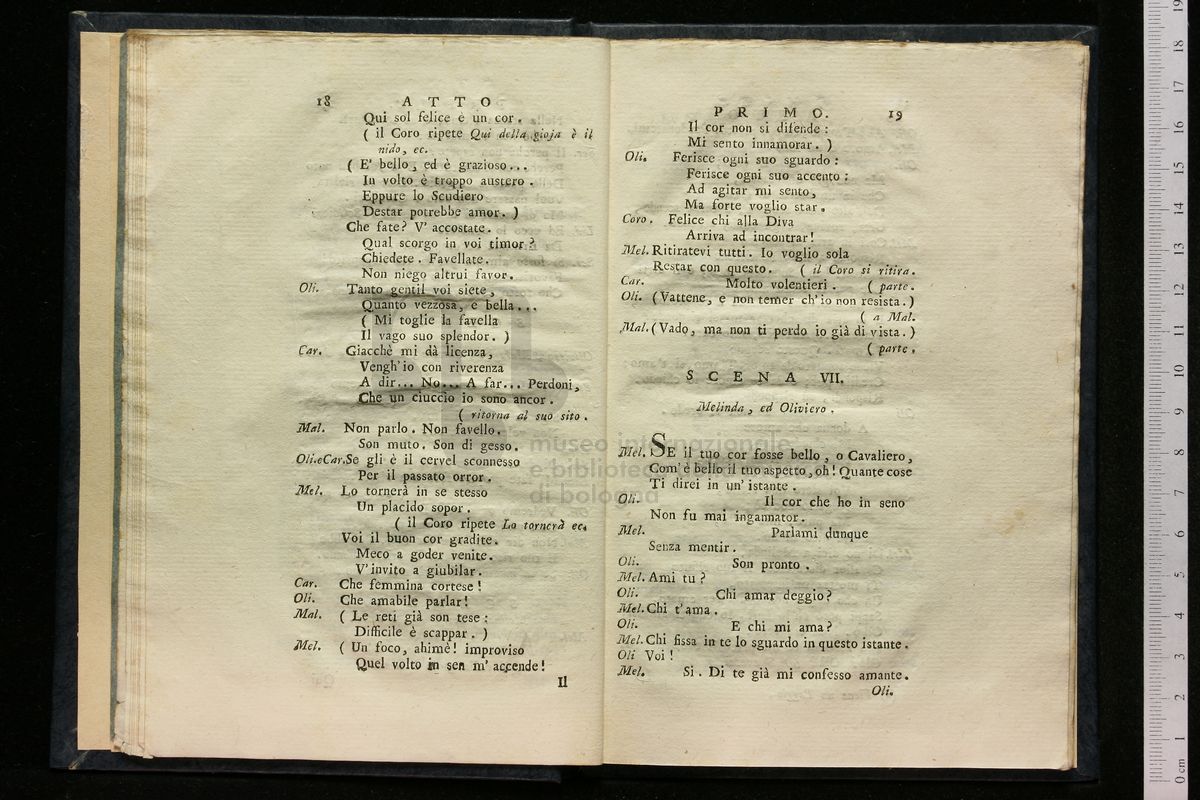 18 ATTO
Qui sol felice è un cor.
( il Coro ripete Qui della gioja è il
nido, ec.
( E' bello, ed è grazioso...
In volto è troppo austero.
Eppure lo Scudiero
Destar potrebbe amor. )
Che fate? V' accostate.
Qual scorgo in voi timor?
Chiedete. Favellate.
Non niego altrui favor.
Oli. Tanto gentil voi siete,
Quanto vezzosa, e bella...
( Mi toglie la favella
Il vago suo splendor. )
Car. Giacchè mi dà licenza,
Vengh' io con riverenza
A dir... No... A far... Perdoni,
Che un ciuccio io sono ancor.
( ritorna al suo sito.
Mal. Non parlo. Non favello.
Son muto. Son di gesso.
Oli.eCar. Se gli è il cervel sconnesso
Per il passato orror.
Mel. Lo tornerà in se stesso
Un placido sopor.
( il Coro ripete Lo tornerà ec.
Voi il buon cor gradite.
Meco a goder venite.
V' invito a giubilar.
Car. Che femmina cortese!
Oli. Che amabile parlar!
Mal. ( Le reti già son tese:
Difficile è scappar. )
Mel. ( Un foco, ahimè! improviso
Quel volto in sen m' accende!
Il
PRIMO. 19
Il cor non si difende:
Mi sento innamorar. )
Oli. Ferisce ogni suo sguardo:
Ferisce ogni suo accento:
Ad agitar mi sento,
Ma forte voglio star.
Coro. Felice chi alla Diva
Arriva ad incontrar!
Mel. Ritiratevi tutti. Io voglio sola
Restar con questo. ( il Coro si ritira.
Car. Molto volentieri. ( parte.
Oli. (Vattene, e non temer ch' io non resista.)
( a Mal.
Mal. (Vado, ma non ti perdo io già di vista.)
( parte.
SCENA VII.
Melinda, ed Oliviero.
Mel. SE il tuo cor fosse bello, o Cavaliero,
Com' è bello il tuo aspetto, oh! Quante cose
Ti direi in un' istante.
Oli. Il cor che ho in seno
Non fu mai ingannator.
Mel. Parlami dunque
Senza mentir.
Oli. Son pronto.
Mel. Ami tu?
Oli. Chi amar deggio?
Mel. Chi t' ama.
Oli. E chi mi ama?
Mel. Chi fissa in te lo sguardo in questo istante.
Oli Voi!
Mel. Si. Di te già mi confesso amante.
Oli.
museo internazionale
e biblioteca
di bologna
0 cm 1 2 3 4 5 6 7 8 9 10 11 12 13 14 15 16 17 18 19